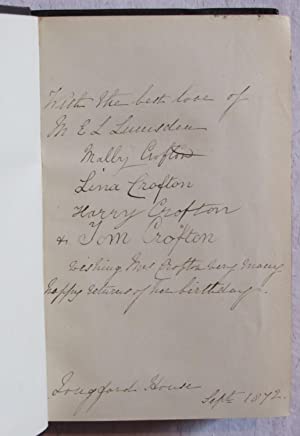 With the best love of
M E L Lumsden
Malby Crofton
Lina Crofton
Harry Crofton
& Tom Crofton
wishing Mrs Crofton very many
happy returns of her birthday.
Longford House
Sept 1872.